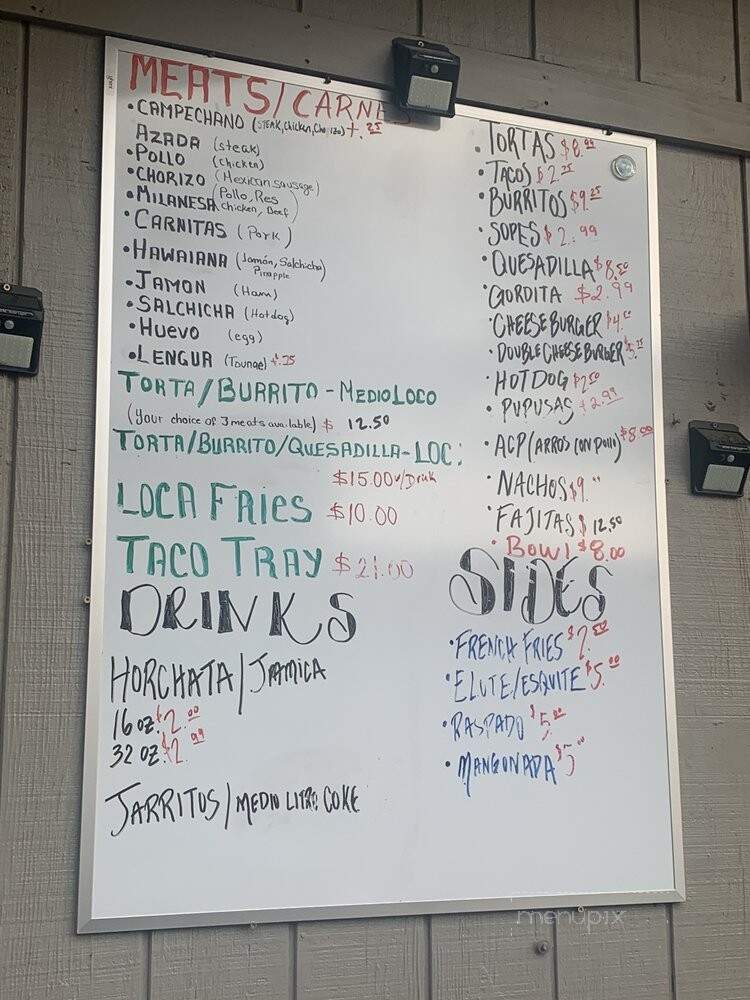 MEATS/CARNES
•CAMPECHANO (STEAK, Chicken, Chorizo) +.25
AZADA (steak)
•POLLO (chicken)
•CHORIZO (Mexican sausage)
•MILANESA (Pollo, Res
Chicken, Beef)
•CARNITAS (Pork)
•HAWAIANA (Jamón, Salchicha
Pineapple
•JAMON (Ham)
•SALCHICHA (Hotdog)
•HUEVO (egg)
•LENGUA (Tounge) +.75
TORTA/BURRITO - MEDIO LOCO
(Your choice of 3 meats available) $ 12.50
TORTA/BURRITO/QUESADILLA-LOC:
$15.00 w/Drink
LOCA FRIES $10.00
TACO TRAY $21.00
DRINKS
HORCHATA/JAMICA
16 oz $2.00
32 oz $2.99
JARRITOS/MEDIO LITRO COKE
•TORTAS $8.99
•TACOS $2.25
•BURRITOS $9.25
•SOPES $2.99
•QUESADILLA $8.50
•GORDITA $2.99
•CHEESEBURGER $4.
•DOUBLE CHEESE BURGER $5.
•HOT DOG $2.50
•PUPUSAS $2.99
•ACP (ARROS CON POLLO) $8.00
•NACHOS $9.
•FAJITAS $ 12.50
•BOWL $8.00
SIDES
•FRENCH FRIES $2.50
•ELOTE/ESQUITE $5.00
•RASPADO $5.00
•MANGONADA $5
menupix